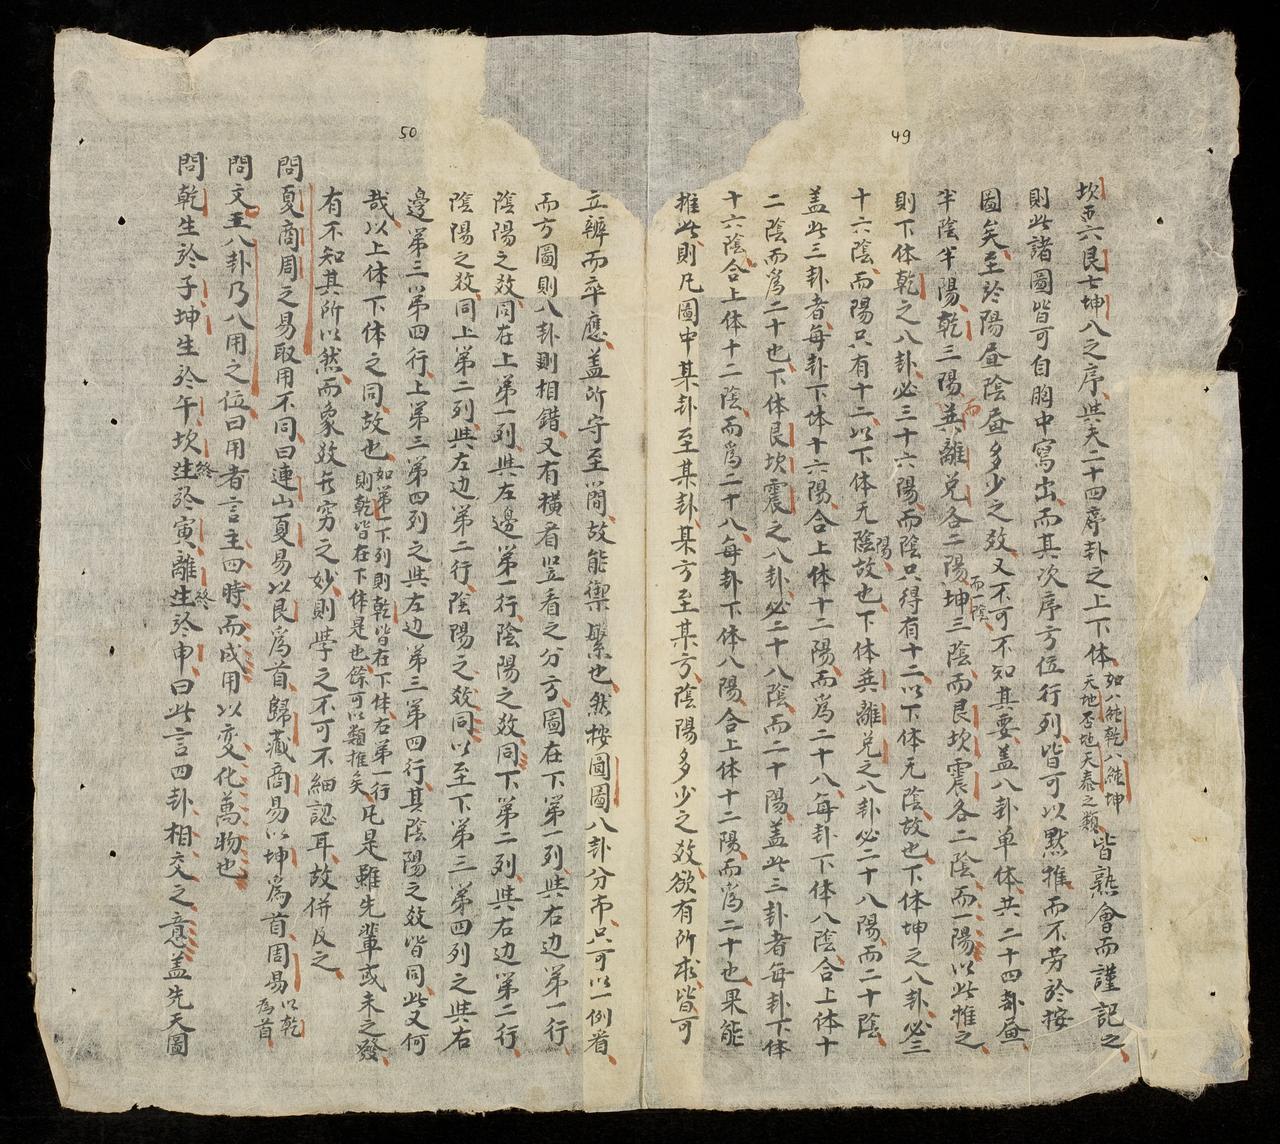 49
坎五六艮七坤八之序與夫二十四序卦之上下体如八純乾八純坤天地否地天泰之類皆熟會而謹記之
則此諸圖皆可自胸中寫出而其次序方位行列皆可以黙推而不劳於按
圖矣至於陽畫陰畫多少之效又不可不知其要盖八卦单体共二十四畫
半陰半陽乾三陽英離兑各二陽而一陰坤三陰而艮坎震各二陰而一陽以此推之
則下体乾之八卦必三十六陽而陰只得有十二以下体无陰故也下体坤之八卦必三
十六陰而陽只有十二以下体无陽故也下体英離兑之八卦必二十八陽而二十陰
盖此三卦者每卦下体十六陽合上体十二陽而為二十八每卦下体八陰合上体十
二陰而為二十也下体艮坎震之八卦必二十八陰而二十陽盖此三卦者每卦下体
十六陰合上体十二陰而為二十八每卦下体八陽合上体十二陽而為二十也果能
推此則凡圖中某卦至某卦某方至某方陰陽多少之效欲有所求皆可
50
立辨而卒應盖所守至簡故能禦繁也然按圓圖八卦分布只可以一例看
而方圖則八卦則相錯又有横看竖看之分方圖在下第一列與右边第一行
陰陽之效同在上第一列與左邊第一行陰陽之效同下第二列與右边第二行
陰陽之效同上第二列與左边第二行陰陽之效同以至下第三第四列之與右
邊第三第四行上第三第四列之與左边第三第四行其陰陽之效皆同此又何
哉以上体下体之同故也如第一下列則乾皆在下体右第一行則乾皆在下体是也餘可以類推矣凡是雖先輩或未之發
有不知其所以然而象效无穷之妙則學之不可不細認耳故併及之
問夏商周之易取用不同曰連山夏易以艮為首歸藏商易以坤為首周易以乾為首
問文王八卦乃八用之位曰用者言主四時而成用以变化萬物也
問乾生於子坤生於午坎終生於寅離終生於申曰此言四卦相交之意盖先天圖